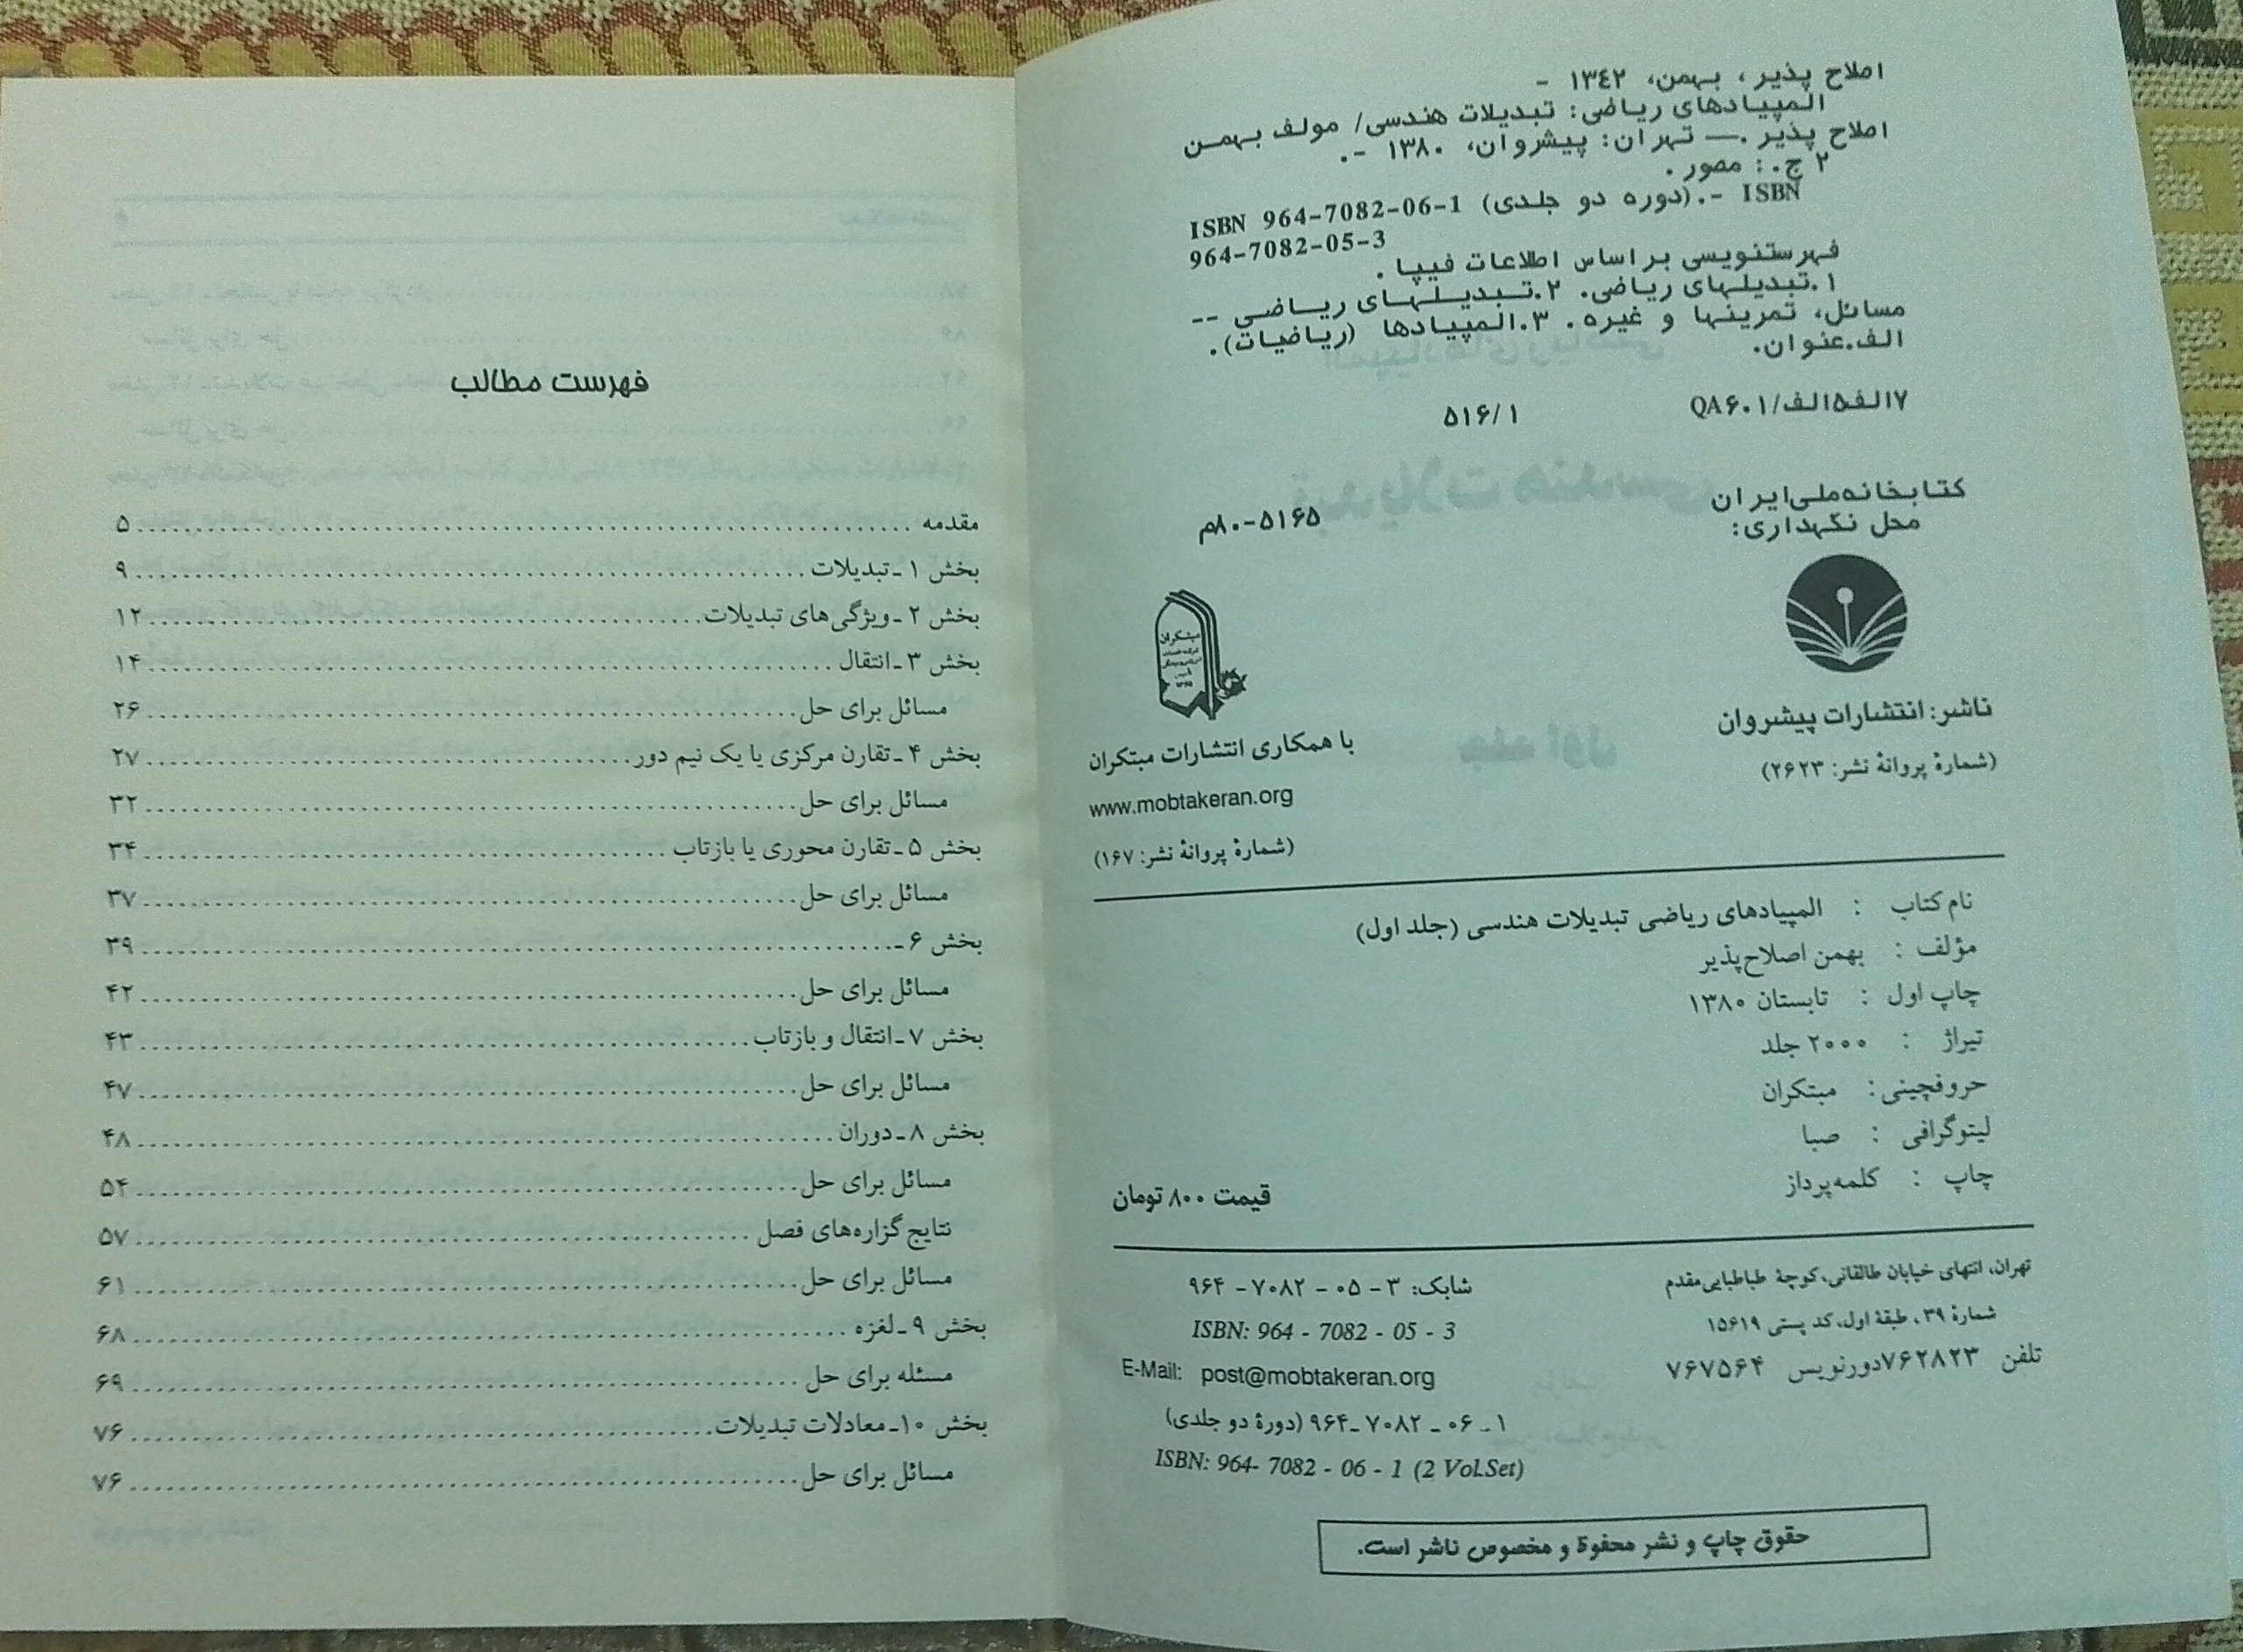 اصلاح پذیر، بهمن، ۱۳۴۲ -
المپیادهای ریاضی: تبدیلات هندسی/ مولف بهمن
اصلاح پذیر .— تهران: پیشروان، ۱۳۸۰ -.
۲ ج.: مصور.
ISBN 964-7082-06-1 (دوره دو جلدی).- ISBN
964-7082-05-3
فهرستنویسی براساس اطلاعات فیپا.
۱.تبدیلهای ریاضی. ۲.تبدیلهای ریاضی --
مسائل، تمرینها و غیره. ۳.المپیادها (ریاضیات).
الف.عنوان.
۵۱۶/۱ QA۶۰۱/الف۵الف۷
کتابخانه ملی ایران
محل نگهداری:
۸۰-۵۱۶۵م
ناشر: انتشارات پیشروان
(شمارهٔ پروانهٔ نشر: ۲۶۲۳)
مبتکران
با همکاری انتشارات مبتکران
www.mobtakeran.org
(شمارهٔ پروانهٔ نشر: ۱۶۷)
نام کتاب : المپیادهای ریاضی تبدیلات هندسی (جلد اول)
مؤلف : بهمن اصلاح‌پذیر
چاپ اول : تابستان ۱۳۸۰
تیراژ : ۲۰۰۰ جلد
حروفچینی: مبتکران
لیتوگرافی : صبا
چاپ : کلمه‌پرداز
قیمت ۸۰۰ تومان
تهران، انتهای خیابان طالقانی، کوچهٔ طباطبایی‌مقدم
شمارهٔ ۳۹، طبقهٔ اول، کد پستی ۱۵۶۱۹
تلفن ۷۶۲۸۲۳ دورنویس ۷۶۷۵۶۴
شابک: ۳ - ۰۵ - ۷۰۸۲ - ۹۶۴
ISBN: 964 - 7082 - 05 - 3
E-Mail: post@mobtakeran.org
۱ـ ۰۶ ـ ۷۰۸۲ ـ۹۶۴ (دورهٔ دو جلدی)
ISBN: 964- 7082 - 06 - 1 (2 Vol.Set)
حقوق چاپ و نشر محفوظ و مخصوص ناشر است.
فهرست مطالب
مقدمه ........ ۵
بخش ۱ ـ تبدیلات ........ ۹
بخش ۲ ـ ویژگی‌های تبدیلات ........ ۱۲
بخش ۳ ـ انتقال ........ ۱۴
مسائل برای حل ........ ۲۶
بخش ۴ ـ تقارن مرکزی یا یک نیم دور ........ ۲۷
مسائل برای حل ........ ۳۲
بخش ۵ ـ تقارن محوری یا بازتاب ........ ۳۴
مسائل برای حل ........ ۳۷
بخش ۶ ـ ........ ۳۹
مسائل برای حل ........ ۴۲
بخش ۷ ـ انتقال و بازتاب ........ ۴۳
مسائل برای حل ........ ۴۷
بخش ۸ ـ دوران ........ ۴۸
مسائل برای حل ........ ۵۴
نتایج گزاره‌های فصل ........ ۵۷
مسائل برای حل ........ ۶۱
بخش ۹ ـ لغزه ........ ۶۸
مسئله برای حل ........ ۶۹
بخش ۱۰ـ معادلات تبدیلات ........ ۷۶
مسائل برای حل ........ ۷۶